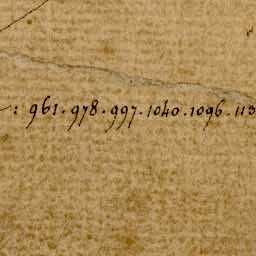 : 961. 978. 997. 1040. 1096. 113